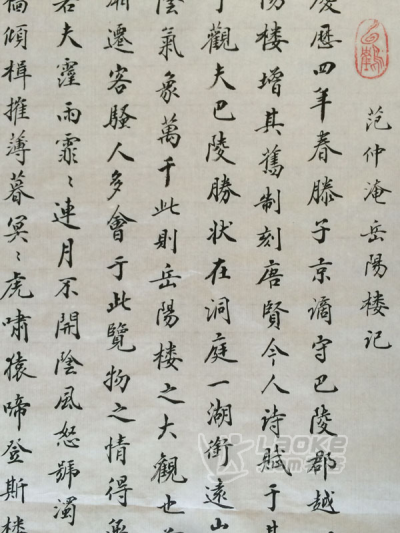 范仲淹岳陽楼記
慶歷四年春滕子京謫守巴陵郡越
陽楼增其舊制刻唐賢今人詩賦于其
觀夫巴陵勝状在洞庭一湖銜遠山
陰氣象萬千此則岳陽楼之大觀也
湘遷客騷人多會于此覽物之情得無
若夫霪雨霏〻連月不開陰風怒號濁
檣傾楫摧薄暮冥〻虎嘯猿啼登斯楼
LAOKE